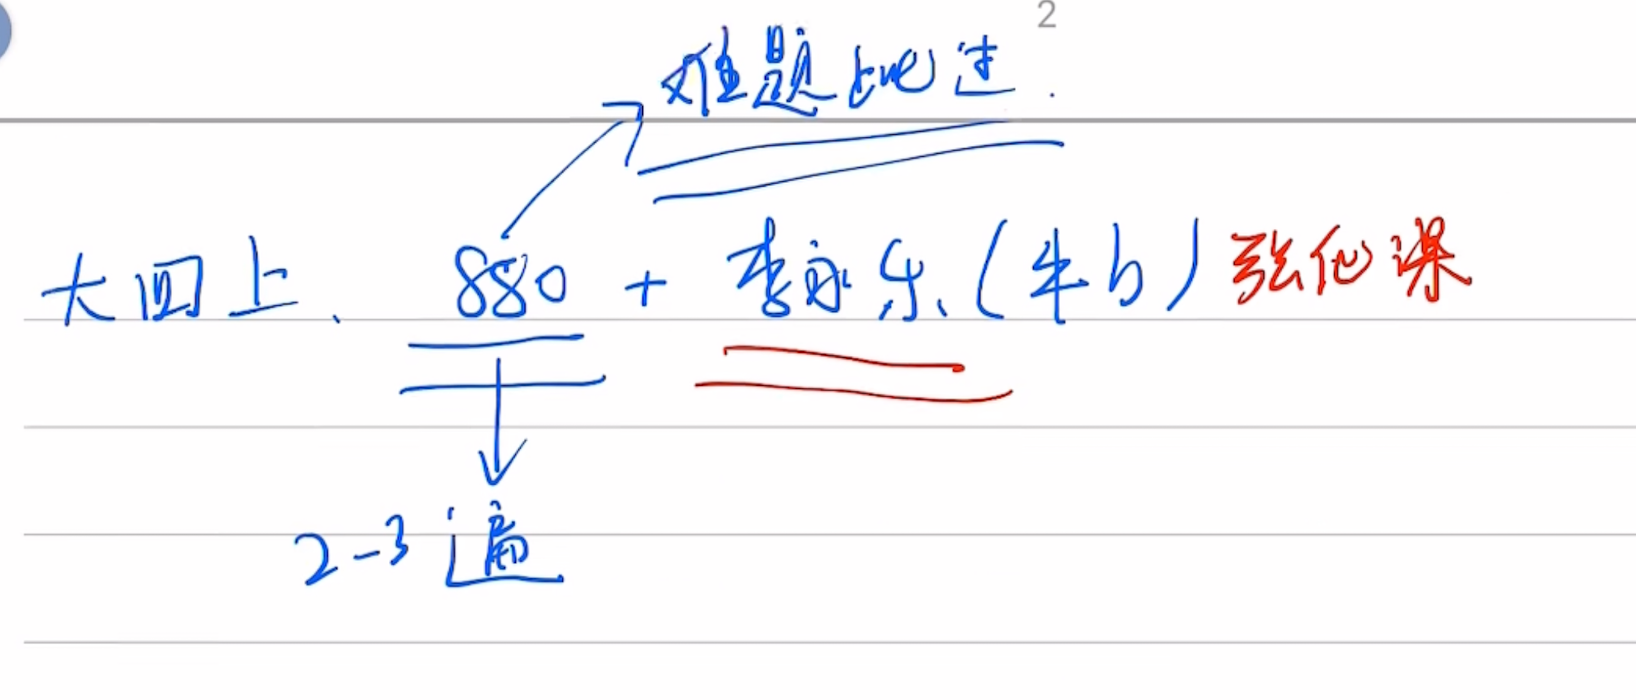 2
难题略过.
大四上、 880 + 李永乐、(牛b) 强化课
2-3遍